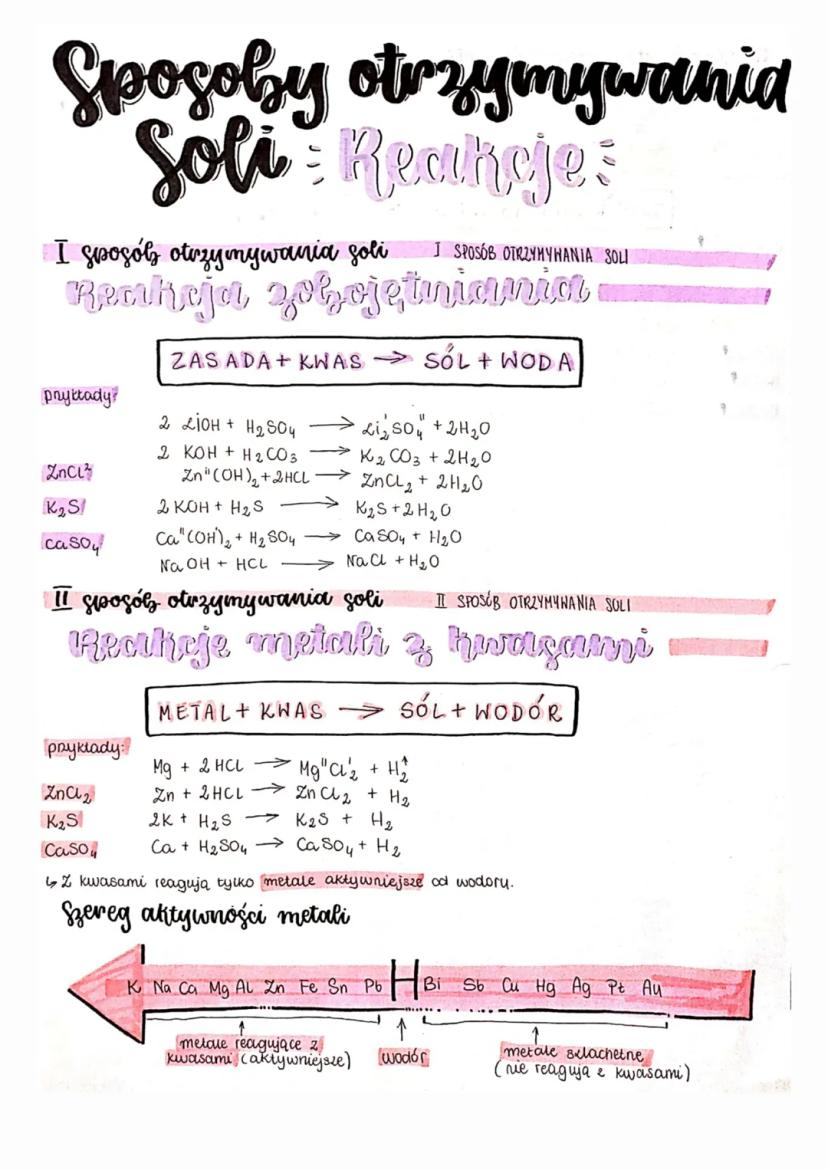 Sposoby otrzymywania
Soli Reakcje
I sposób otrzymywania soli I SPOSÓB OTRZYMYWANIA SOLI
Reakcja zobojętniania
ZASADA + KWAS → SÓL + WODA
przykłady:
2 LiOH + H₂SO₄ → Liᴵ₂SO₄ᴵᴵ + 2H₂O
2 KOH + H₂CO₃ → K₂CO₃ + 2H₂O
ZnCl² Znᴵᴵ(OH)₂ + 2HCL → ZnCL₂ + 2H₂O
K₂S 2 KOH + H₂S → K₂S + 2H₂O
CaSO₄ Caᴵᴵ(OHᴵ)₂ + H₂SO₄ → CaSO₄ + H₂O
NaOH + HCL → NaCl + H₂O
II sposób otrzymywania soli II SPOSÓB OTRZYMYWANIA SOLI
Reakcje metali z kwasami
METAL + KWAS → SÓL + WODÓR
przykłady:
Mg + 2HCL → MgᴵᴵClᴵ₂ + H₂↑
ZnCl₂ Zn + 2HCL → ZnCL₂ + H₂
K₂S 2K + H₂S → K₂S + H₂
CaSO₄ Ca + H₂SO₄ → CaSO₄ + H₂
↳ Z kwasami reagują tylko metale aktywniejsze od wodoru.
Szereg aktywności metali
K Na Ca Mg Al Zn Fe Sn Pb H Bi Sb Cu Hg Ag Pt Au
metale reagujące z
kwasami (aktywniejsze)
wodór
metale szlachetne
(nie reagują z kwasami)